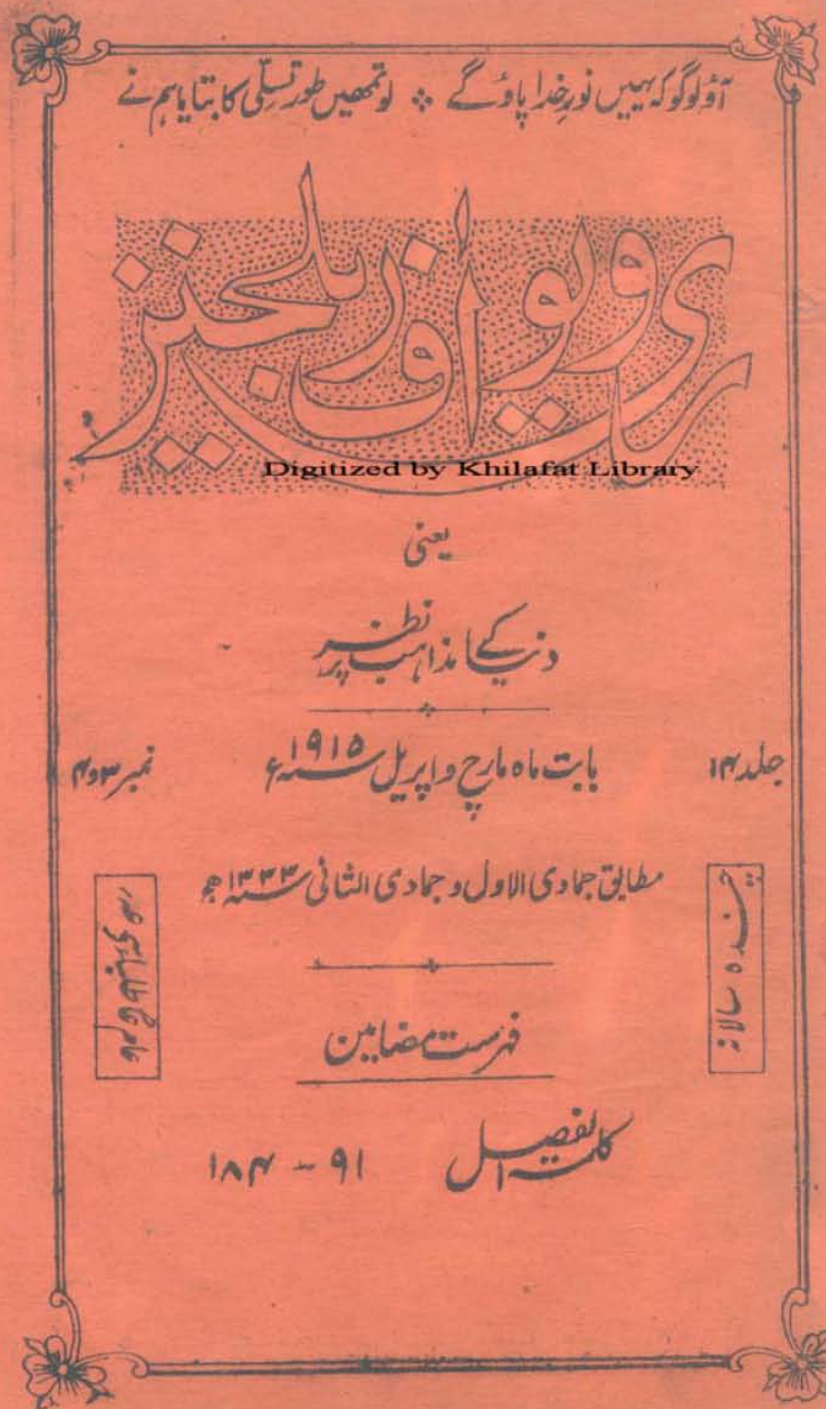 آؤ لوگو کہ یہیں نورِ خدا پاؤ گے ⁘ لو تمھیں طور تسلّی کا بتایا ہم نے
ریویو آف ریلیجنز
Digitized by Khilafat Library
یعنی
دنیا کے مذاہب پر نظر
جلد ۱۴ بابت ماہ مارچ و اپریل سنہ ۱۹۱۵ء نمبر ۳ و ۴
مطابق جمادی الاول و جمادی الثانی سنہ ۱۳۳۳ھ
چندہ سالانہ
فہرست مضامین
کلمۃ الفصل ۹۱ - ۱۸۴